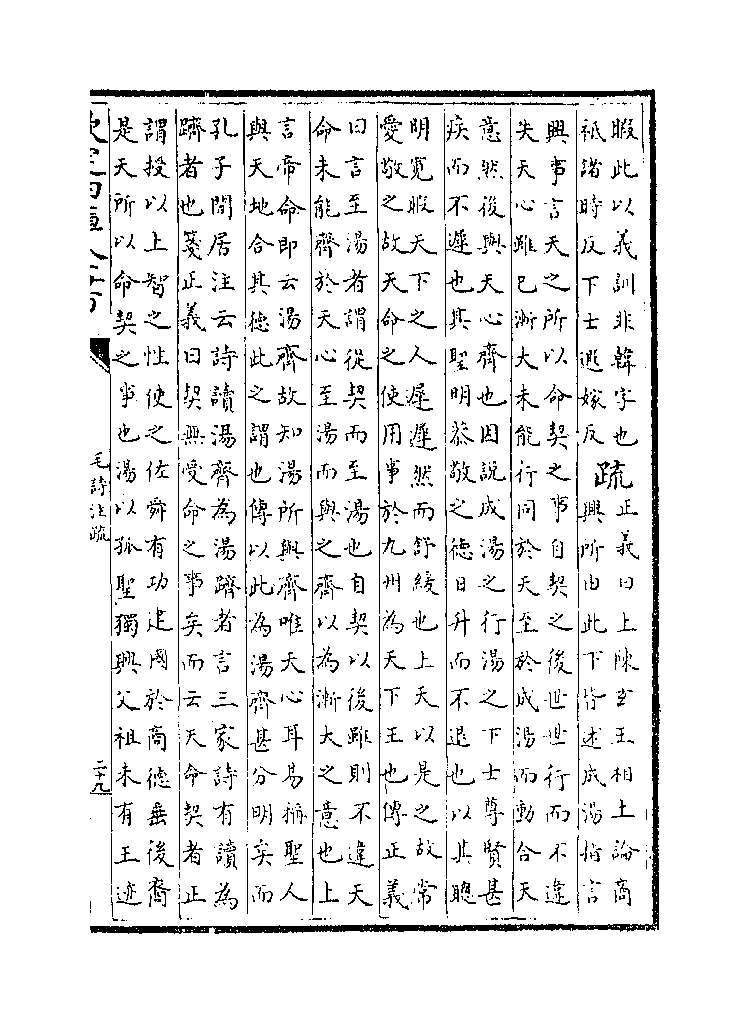 暇此以義訓非韓字也
祗諸時反下士遐嫁反
疏
正義曰上陳玄王相土論商
興所由此下皆述成湯指言
興事言天之所以命契之事自契之後世世行而不違
失天心雖已漸大未能行同於天至於成湯而動合天
意然後與天心齊也因說成湯之行湯之下士尊賢甚
疾而不遲也其聖明恭敬之德日升而不退也以其聰
明寛暇天下之人遲遲然而舒緩也上天以是之故常
愛敬之故天命之使用事於九州為天下王也傳正義
曰言至湯者謂從契而至湯也自契以後雖則不違天
命未能齊於天心至湯而與之齊以為漸大之意也上
言帝命即云湯齊故知湯所與齊唯天心耳易稱聖人
與天地合其德此之謂也傳以此為湯齊甚分明矣而
孔子間居注云詩讀湯齊為湯躋者言三家詩有讀為
躋者也箋正義曰契無受命之事矣而云天命契者正
謂授以上智之性使之佐舜有功建國於商德垂後裔
是天所以命契之事也湯以孤聖獨興父祖未有王迹
毛詩注疏
二十九